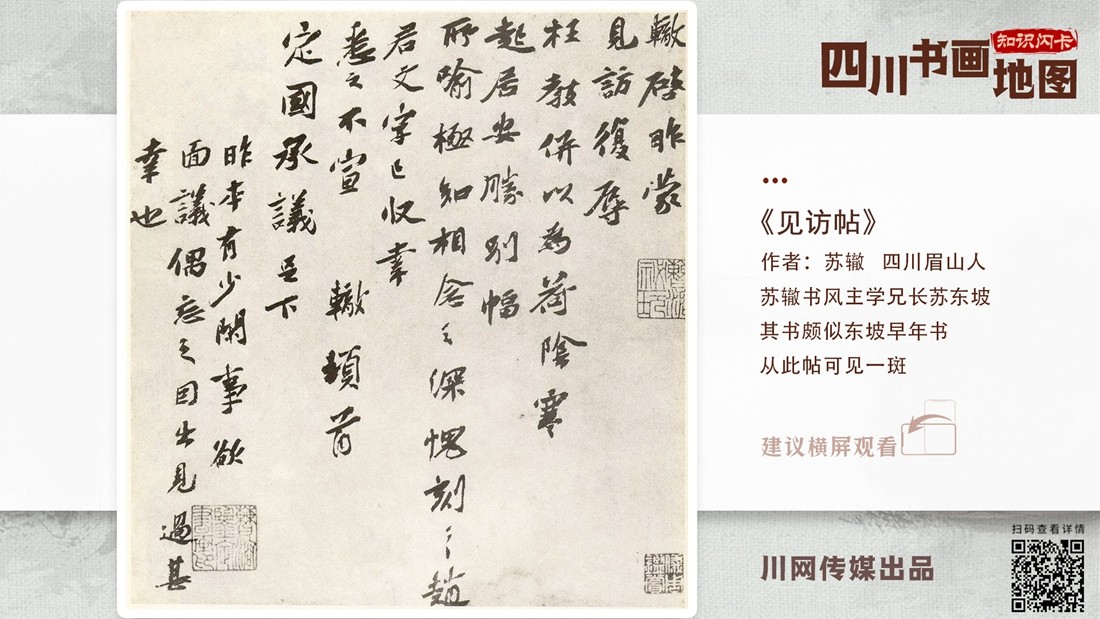 轍啓昨蒙
見訪復辱
枉教併以為荷陰寒
起居安勝別幅
所喻極知相念之深愧刻〻趙
君文字已收幸
悉之不宣 轍頓首
定國承議足下
昨本有少閑事欲
面議偶忘之因出見過甚
幸也
知识闪卡
四川书画地图
《见访帖》
作者：苏辙 四川眉山人
苏辙书风主学兄长苏东坡
其书颇似东坡早年书
从此帖可见一斑
建议横屏观看
川网传媒出品
扫码查看详情